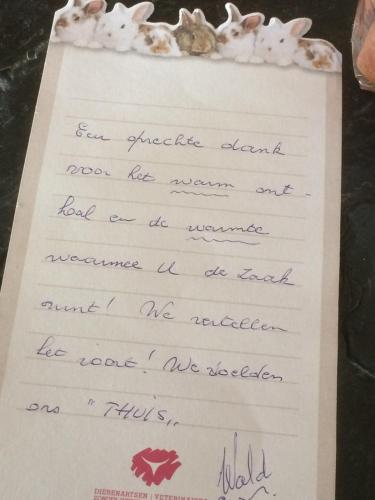 Een oprechte dank
voor het warm ont-
haal en de warmte
waarmee U de zaak
runt! We vertellen
het voort! We voelden
ons "THUIS"
Wald
DIERENARTSEN | VETERINAIRES